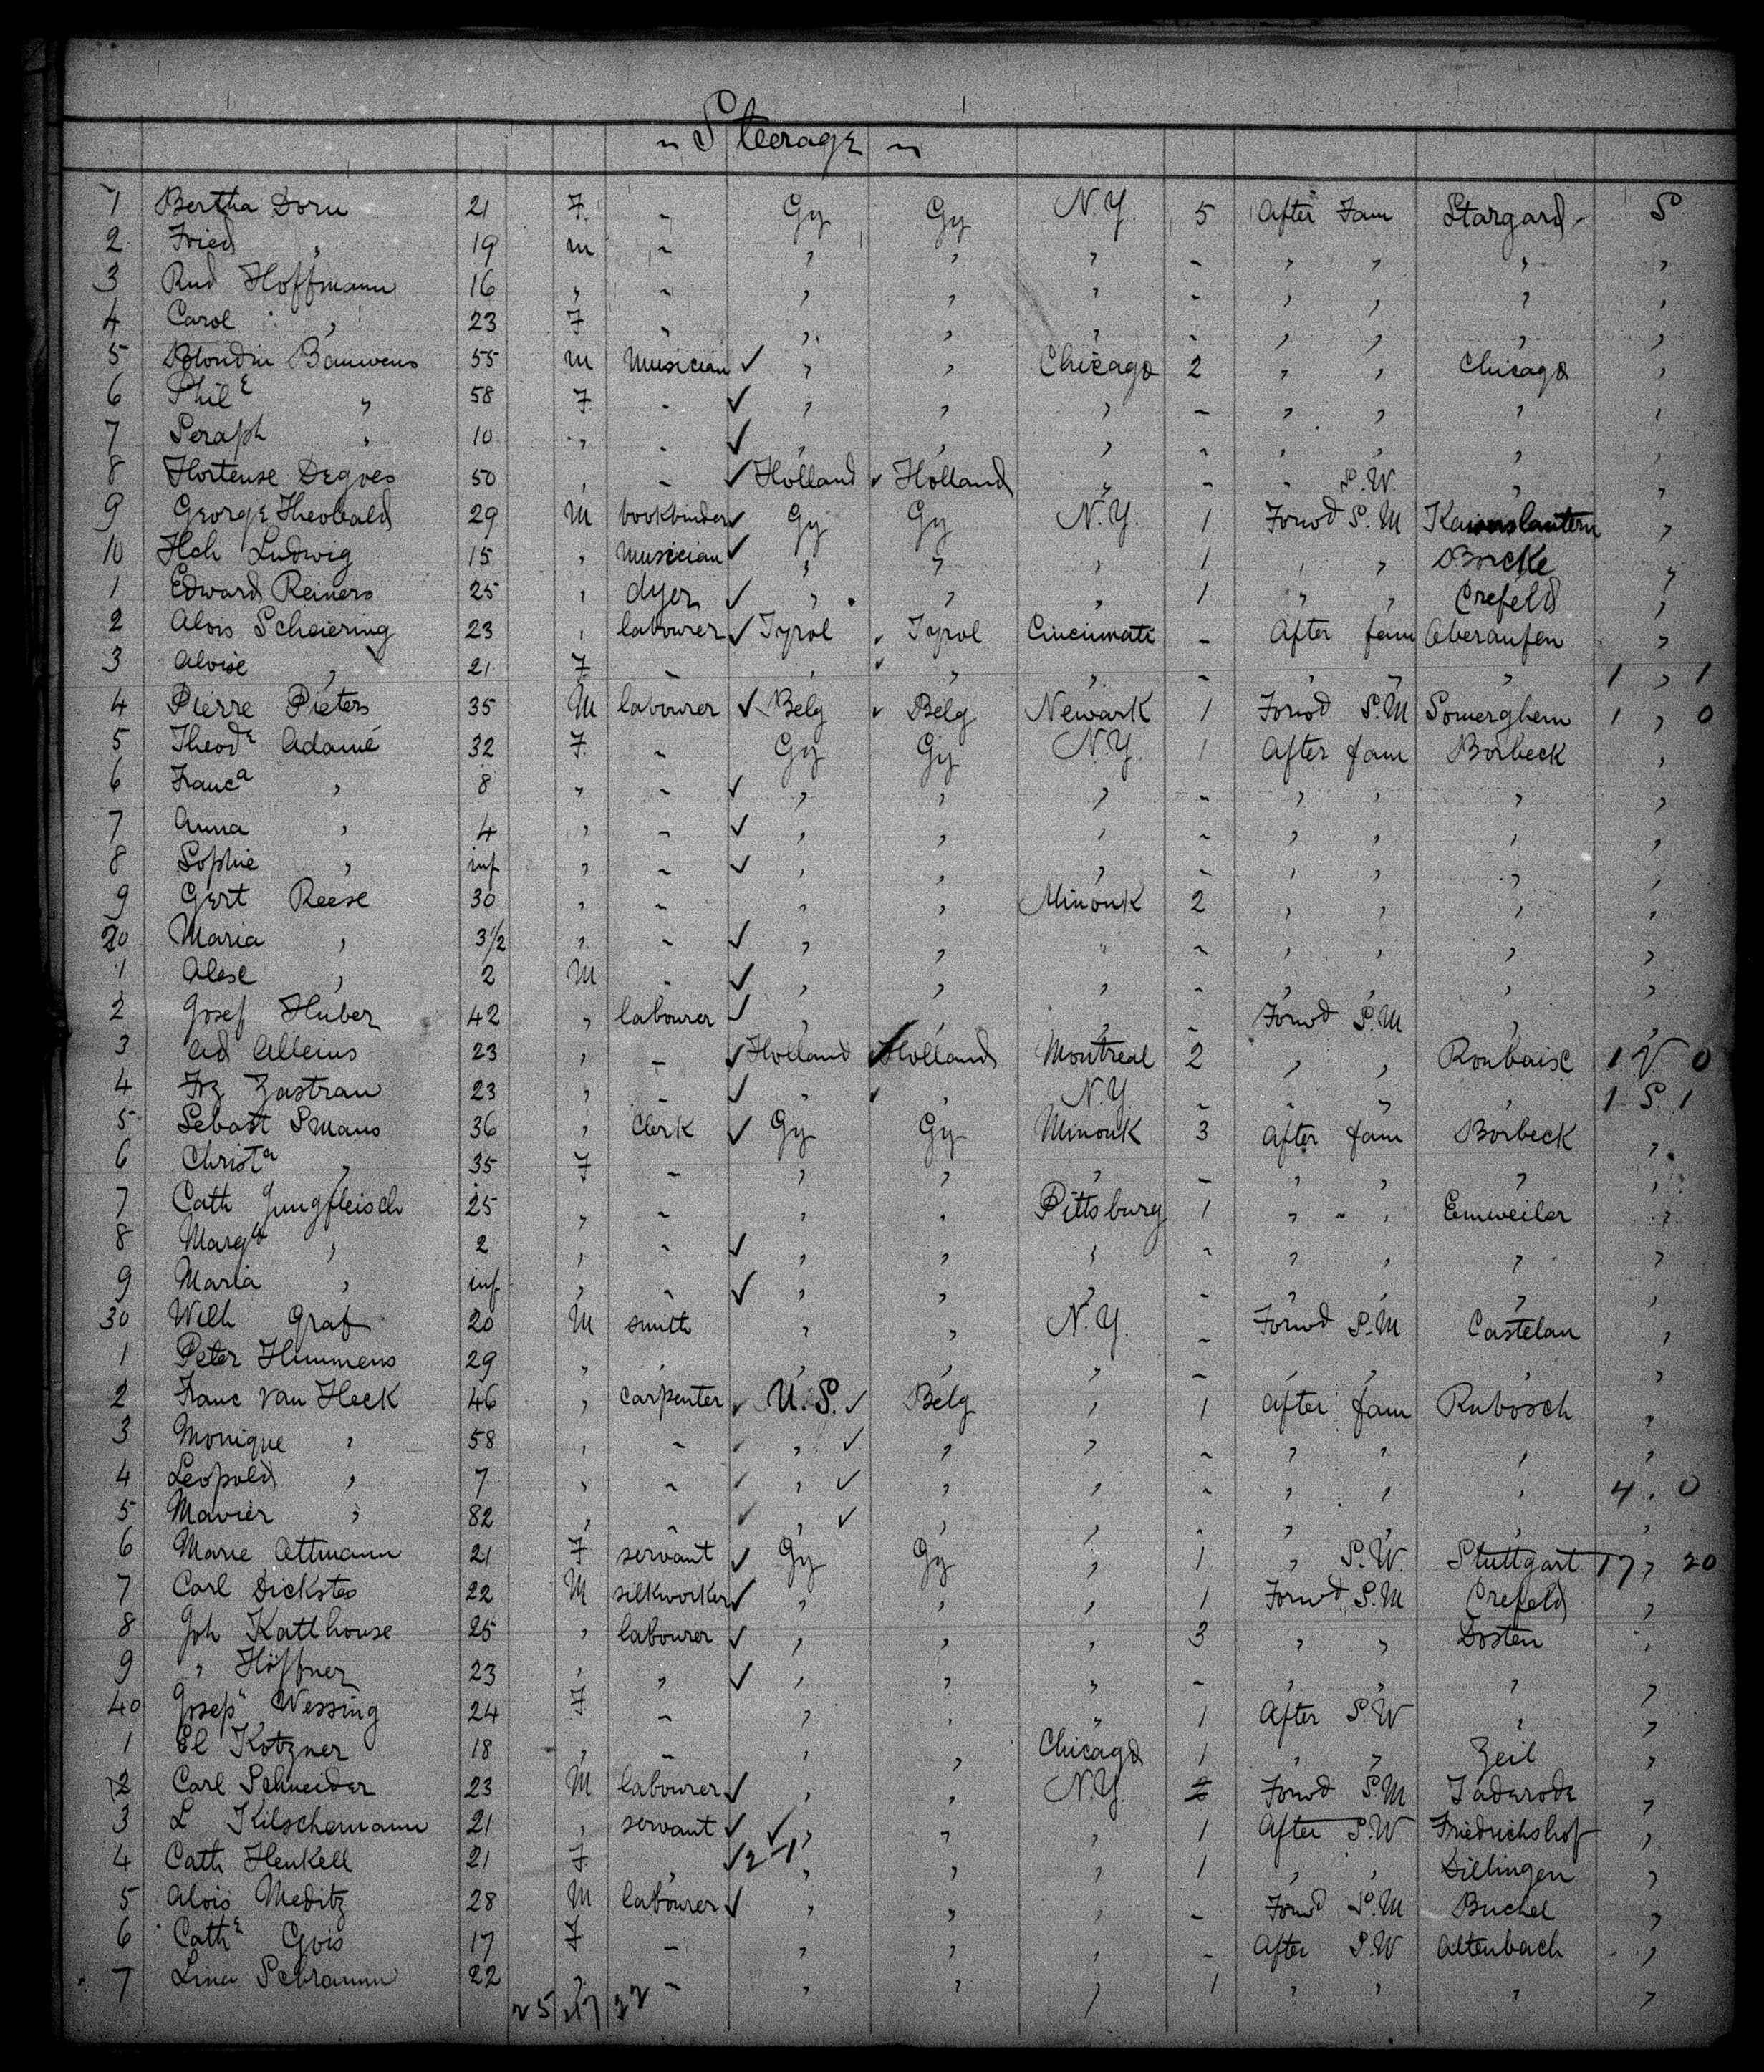 Steerage
1 Bertha Dorn 21 F. - Gy Gy N.Y. 5 After Fam Stargard - S
2 Fried " 19 m - " " " - " " " "
3 Rud Hoffmann 16 " - " " " - " " " "
4 Carol " 23 F - " " " - " " " "
5 Blondin Bauwens 55 m Musician ✓ " " Chicago 2 " " Chicago "
6 Phil e " 58 F. - ✓ " " " - " " " "
7 Seraph " 10 " - ✓ " " " - " " " "
8 Hortense Degves 50 " - ✓ Holland ✓ Holland " - - S.W. " "
9 George Theobald 29 M bookbinder ✓ Gy Gy N.Y. 1 Forwd S.M Kaiserslautern "
10 Hch Ludwig 15 " Musician ✓ " " " 1 " " Borcke "
1 Edward Reiners 25 " dyer ✓ " " " 1 " " Crefeld "
2 Alois Scheiering 23 " labourer ✓ Tyrol ✓ Tyrol Cincinnati - After fam Oberaufen "
3 Aloise " 21 F. - " ✓ " " - " " " 1 " 1
4 Pierre Pieters 35 M labourer ✓ Belg ✓ Belg Newark 1 Forwd S.M Somerghem 1 " 0
5 Theod e Adamé 32 F. - Gy Gy N.Y. 1 After fam Borbeck "
6 Franc a " 8 " - ✓ " " " - " " " "
7 Anna " 4 " - ✓ " " " - " " " "
8 Sophie " inf " - ✓ " " " - " " " "
9 Gert Reese 30 " - " " Minonk 2 " " " "
20 Maria " 3 1/2 " - ✓ " " " - " " " "
1 " 2 M - ✓ " " " - " " " "
2 Josef Huber 42 " labourer ✓ " " " - Forwd S.M " "
3 Ad Alleins 23 " - ✓ Holland ✓ Holland Montreal 2 " " Roubaise 1 V 0
4 Frz Zastrau 23 " - ✓ " ✓ " N.Y. - - " " 1 S 1
5 Sebast Smans 36 " Clerk ✓ Gy Gy Minonk 3 After fam Borbeck "
6 Christ a " 35 F - " " " - " " " "
7 Cath Jungfleisch 25 " - " " Pittsburg 1 " - " Emweiler "
8 Marg " 2 " - ✓ " " " - " " " "
9 Maria " inf " - ✓ " " " - " " " "
30 Wilh Graf 20 M smith " " N.Y. - Forwd S.M Castelan "
1 Peter Himmens 29 " " " " " - " " " "
2 Franc van Heck 46 " carpenter ✓ U.S. ✓ Belg " 1 After fam Rubosch "
3 Monique " 58 " - ✓ " ✓ " " - " " " "
4 Leopold " 7 " - ✓ " ✓ " " - " " " 4 " 0
5 Mavier " 82 " - ✓ " ✓ " " - " " " "
6 Marie Ottmann 21 F servant ✓ Gy Gy " 1 " S.W. Stuttgart 17 " 20
7 Carl Dickstes 22 M silkworker ✓ " " " 1 Forwd S.M Crefeld "
8 Joh Katthouse 25 " labourer ✓ " " " 3 " " Dosten "
9 " Höffner 23 " " ✓ " " " - " " " "
40 Josep h Wessing 24 F - " " " 1 After S.W " "
1 El Kotzner 18 " - " " Chicago 1 " " Zeil "
2 Carl Schneider 23 M labourer ✓ " " N.Y. 2 Forwd S.M Taderode "
3 L Kilschemann 21 " servant ✓ ✓ " " " 1 After S.W Friedrichshof "
4 Cath Henkell 21 F. " ✓ 2-1 " " " 1 " " Dillingen "
5 Alois Meditz 28 M labourer ✓ " " " - Forwd S.M Buchel "
6 Cath e Gois 17 F - " " " - After S.W Altenbach "
7 Lina Schramm 22 " - " " " 1 " " " "
25/47/22